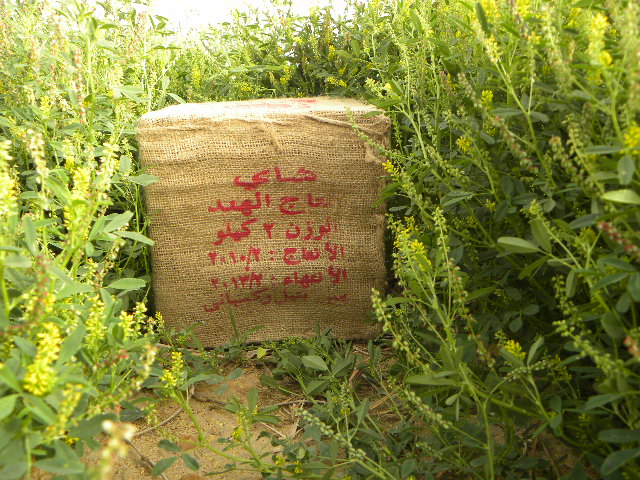 شاي
تاج الهند
الوزن ٢ كيلو
الأنتاج : ٢٠١٠/٢
الأنتهاء : ٢٠١٣/٢